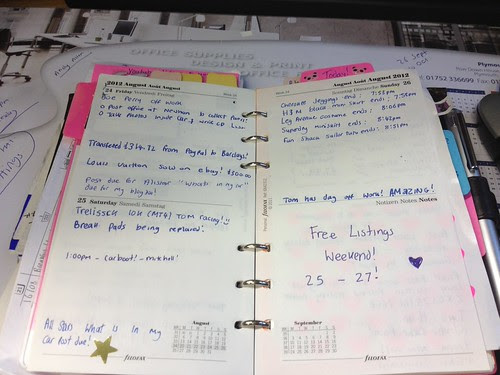 OFFICE SUPPLIES
DESIGN & PRINT
OFFICE
26 Sept
Plymo
01752 336699
Youtube
Today
2012 August Août August
24 Friday Vendredi Freitag
Dave Perry off work
o Post office at newnham to collect parcel
Transferred £34.72 from PayPal to Barclays!
Louis vuitton saw on ebay! $300.00
Post due for Allsstar "whats in my car"
due for my blog/vid!
25 Saturday Samedi Samstag
Trelissick 10k (MT4) Tom racing!
Break Pads being replaced!
1:00pm - carboot! - mutchell!
All Stars What is in my
Car Post due!
August
filofax
August Août August 2012
Sunday Dimanche Sonntag 26
Oversize Jeggings end: 7:55pm
H&M black inner skirt ends: 7:58pm
Leg Avenue costume ends: 8:06pm
Superdry miniskirt ends: 8:42pm
Fun Shack sailor fun ends: 8:51pm
Tom has day off work! AMAZING!
Notizen Notes Notes
Free Listings
Weekend!
25 - 27!
September
filofax